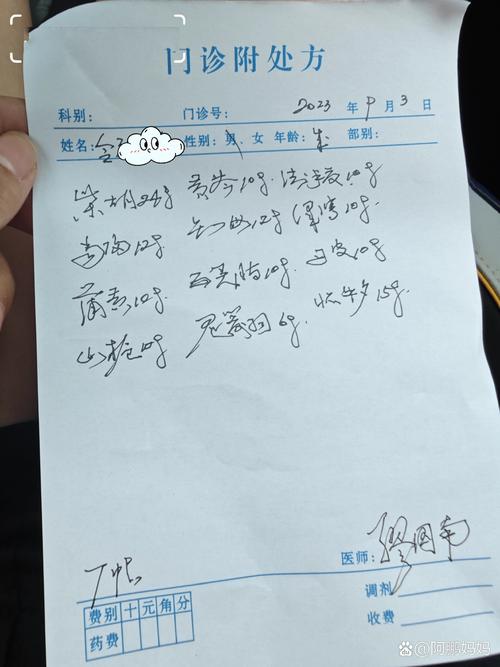 门诊附处方
科别: 门诊号: 2023 年 9 月 3 日
姓名: 性别: 男、女 年龄: 成 部别:
柴胡24g 黄芩10g 法半夏10g
青陈12g 知母12g 泽泻10g
蒲黄10g 五灵脂10g 丹皮10g
山栀10g 鬼箭羽6g 怀牛夕15g
医师: 廖国南
7帖
调剂
费别 十 元 角 分
药费
收费
阿鹏妈妈